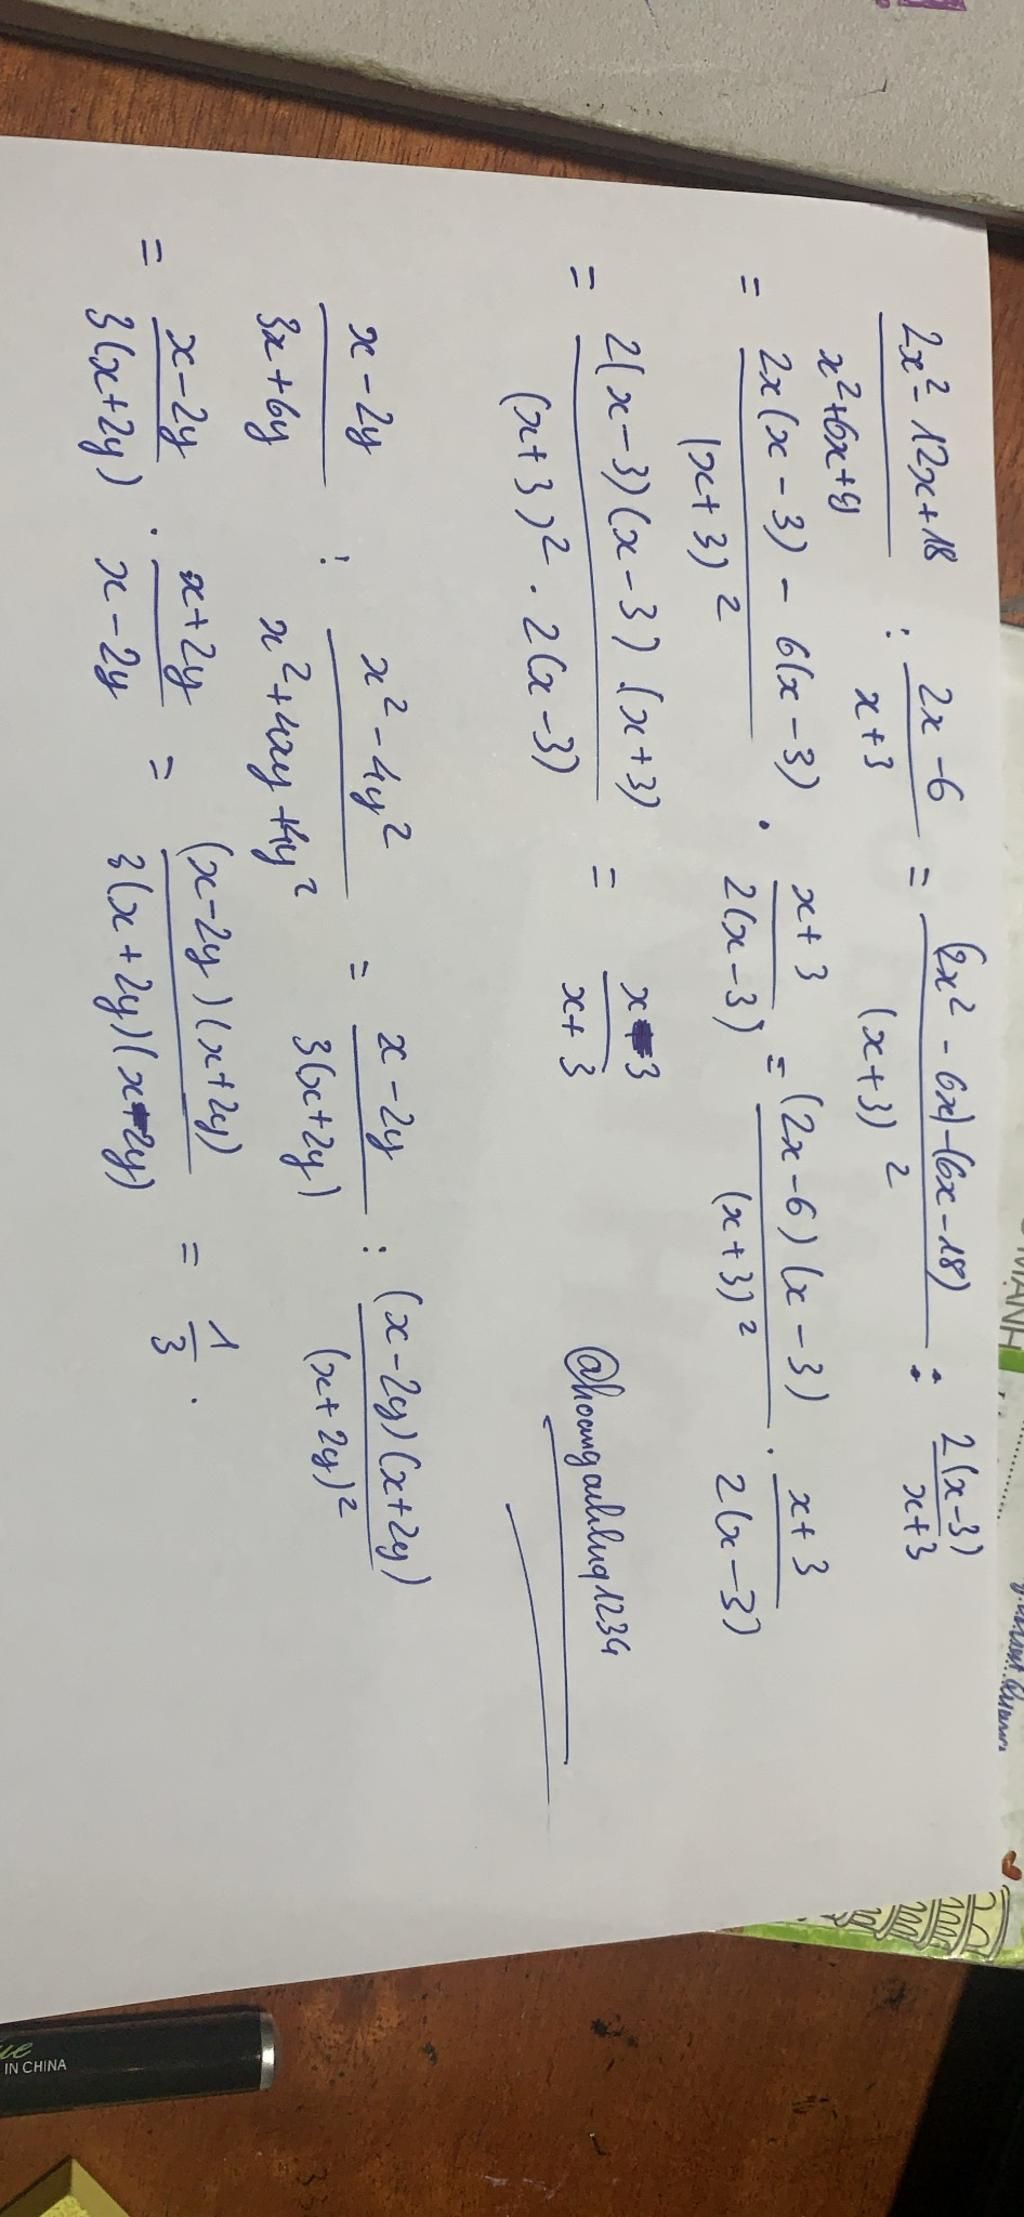 \frac{2x^2 - 12x + 18}{x^2 + 6x + 9} : \frac{2x - 6}{x + 3} = \frac{(2x^2 - 6x) - (6x - 18)}{(x + 3)^2} : \frac{2(x - 3)}{x + 3}
= \frac{2x(x - 3) - 6(x - 3)}{(x + 3)^2} . \frac{x + 3}{2(x - 3)} = \frac{(2x - 6)(x - 3)}{(x + 3)^2} . \frac{x + 3}{2(x - 3)}
= \frac{2(x - 3)(x - 3).(x + 3)}{(x + 3)^2 . 2(x - 3)} = \frac{x - 3}{x + 3}
\frac{x - 2y}{3x + 6y} : \frac{x^2 - 4y^2}{x^2 + 4xy + 4y^2} = \frac{x - 2y}{3(x + 2y)} : \frac{(x - 2y)(x + 2y)}{(x + 2y)^2}
= \frac{x - 2y}{3(x + 2y)} . \frac{x + 2y}{x - 2y} = \frac{(x - 2y)(x + 2y)}{3(x + 2y)(x - 2y)} = \frac{1}{3} .
IN CHINA